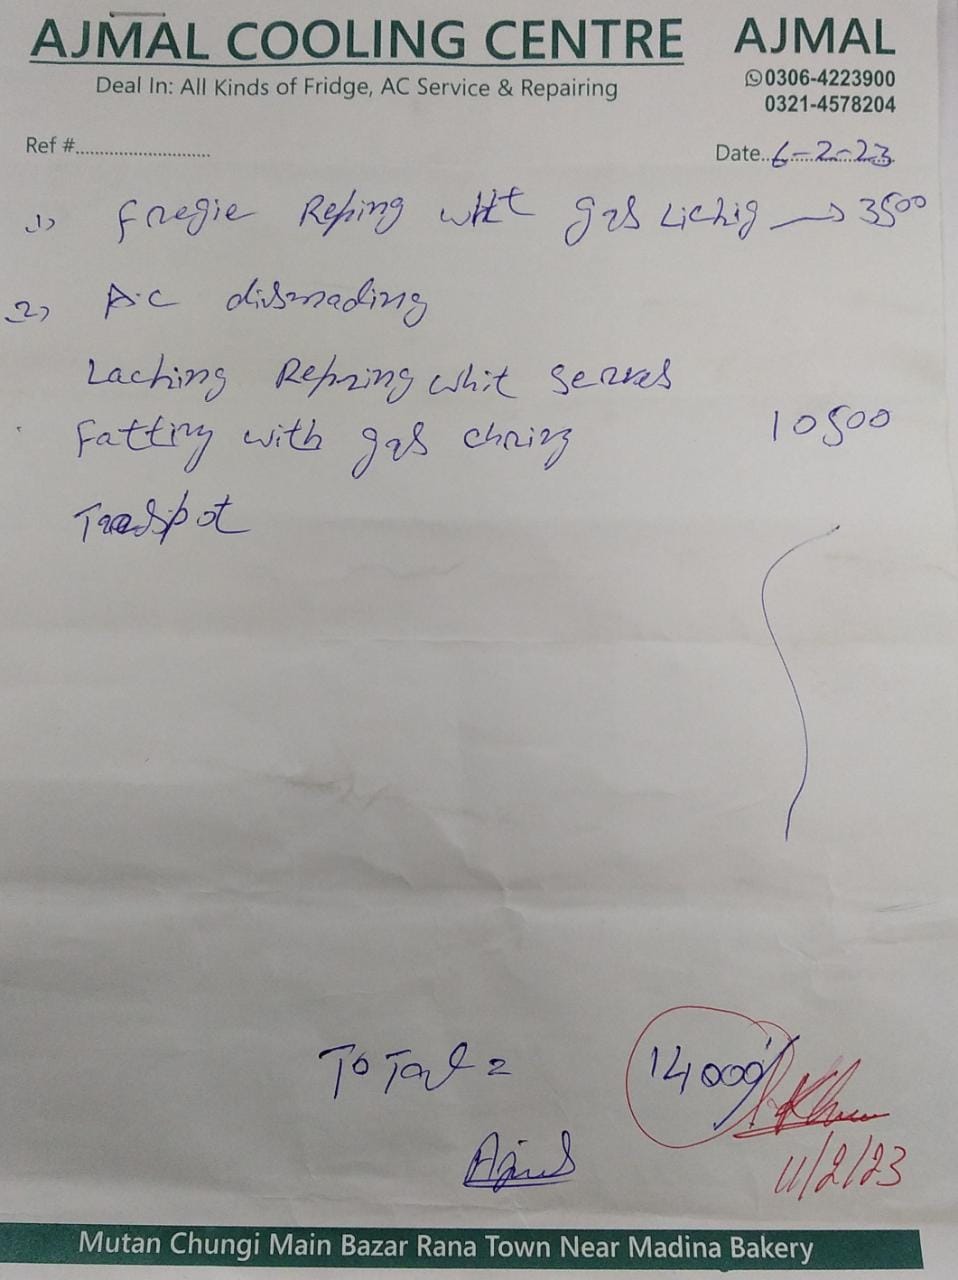 AJMAL COOLING CENTRE
AJMAL
Deal In: All Kinds of Fridge, AC Service & Repairing
0306-4223900
0321-4578204
Ref #............................
Date..6-2-23
1) fregie Reping whit gas Lichig → 3500
2) A.C dismading
Laching Repring whit serves
fatting with gas chring 10500
Traspot
ToTal = 14000/
11/2/23
Mutan Chungi Main Bazar Rana Town Near Madina Bakery